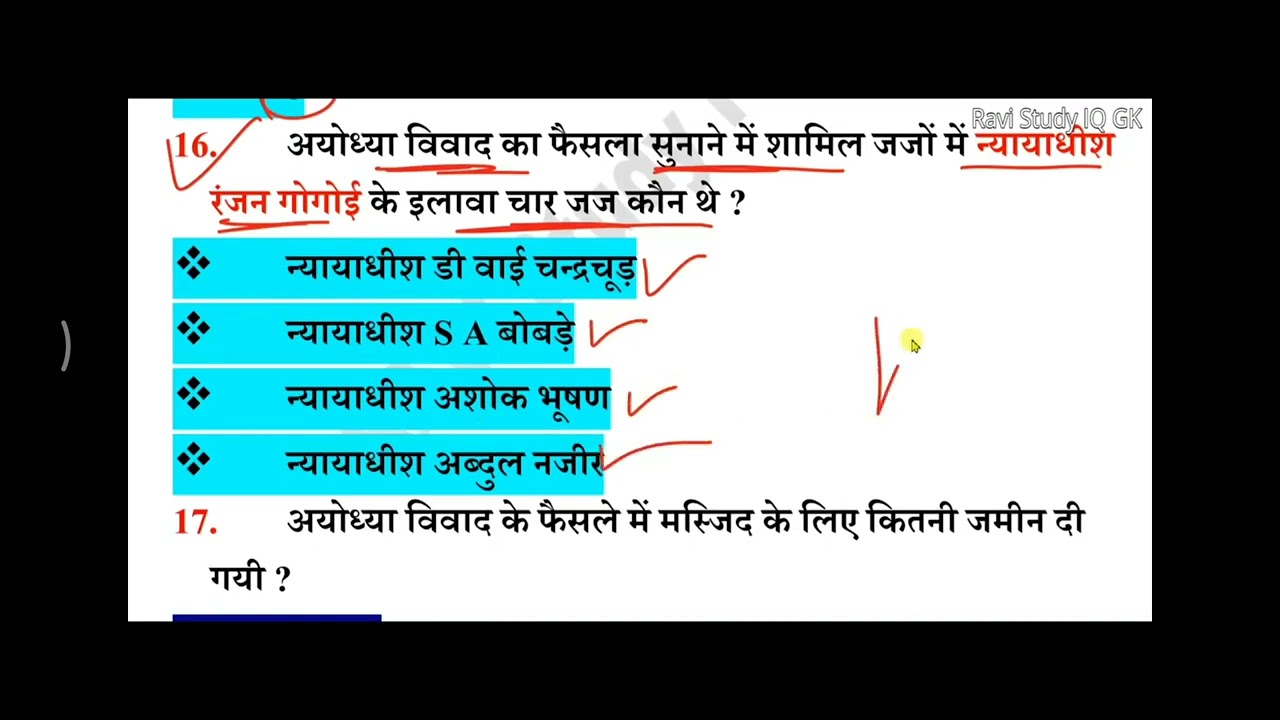 Ravi Study IQ GK
16. अयोध्या विवाद का फैसला सुनाने में शामिल जजों में न्यायाधीश
रंजन गोगोई के इलावा चार जज कौन थे ?
❖ न्यायाधीश डी वाई चन्द्रचूड़
❖ न्यायाधीश S A बोबड़े
❖ न्यायाधीश अशोक भूषण
❖ न्यायाधीश अब्दुल नजीर
17. अयोध्या विवाद के फैसले में मस्जिद के लिए कितनी जमीन दी
गयी ?